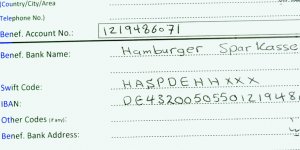 (Country/City/Area
Telephone No.)
Benef. Account No.: 1219486071
Benef. Bank Name: Hamburger Sparkasse
Swift Code: HASPDEHHXXX
IBAN: DE43200505501219486
Other Codes (if any):
Benef. Bank Address: